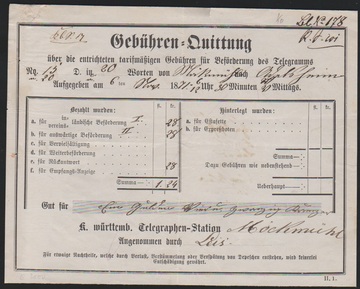 Gebühren-Quittung
über die entrichteten tarifmäßigen Gebühren für Beförderung des Telegramms
Nr. D. in 20 Worten von Möckmühl nach
Aufgegeben am 6 Nov. 18 Uhr Minuten Mittags.
Bezahlt wurden:
fl. kr.
a. für in- vereinsländische Beförderung I. 28
b. für auswärtige Beförderung II. 28
c. für Vervielfältigung
d. für Weiterbeförderung
e. für Rückantwort 28
f. für Empfangs-Anzeige
Summa 1. 24
Hinterlegt wurden:
fl. kr.
a. für Estafette
b. für Expreßboten
Summe
Dazu Gebühren wie nebenstehend
Ueberhaupt
Gut für Ein Gulden Vier zwanzig Kreuzer
K. württemb. Telegraphen-Station Möckmühl
Angenommen durch
Für etwaige Nachtheile, welche durch Verlust, Verstümmelung oder Verspätung von Depeschen entstehen, wird keinerlei
Entschädigung gewährt.
II. 1.